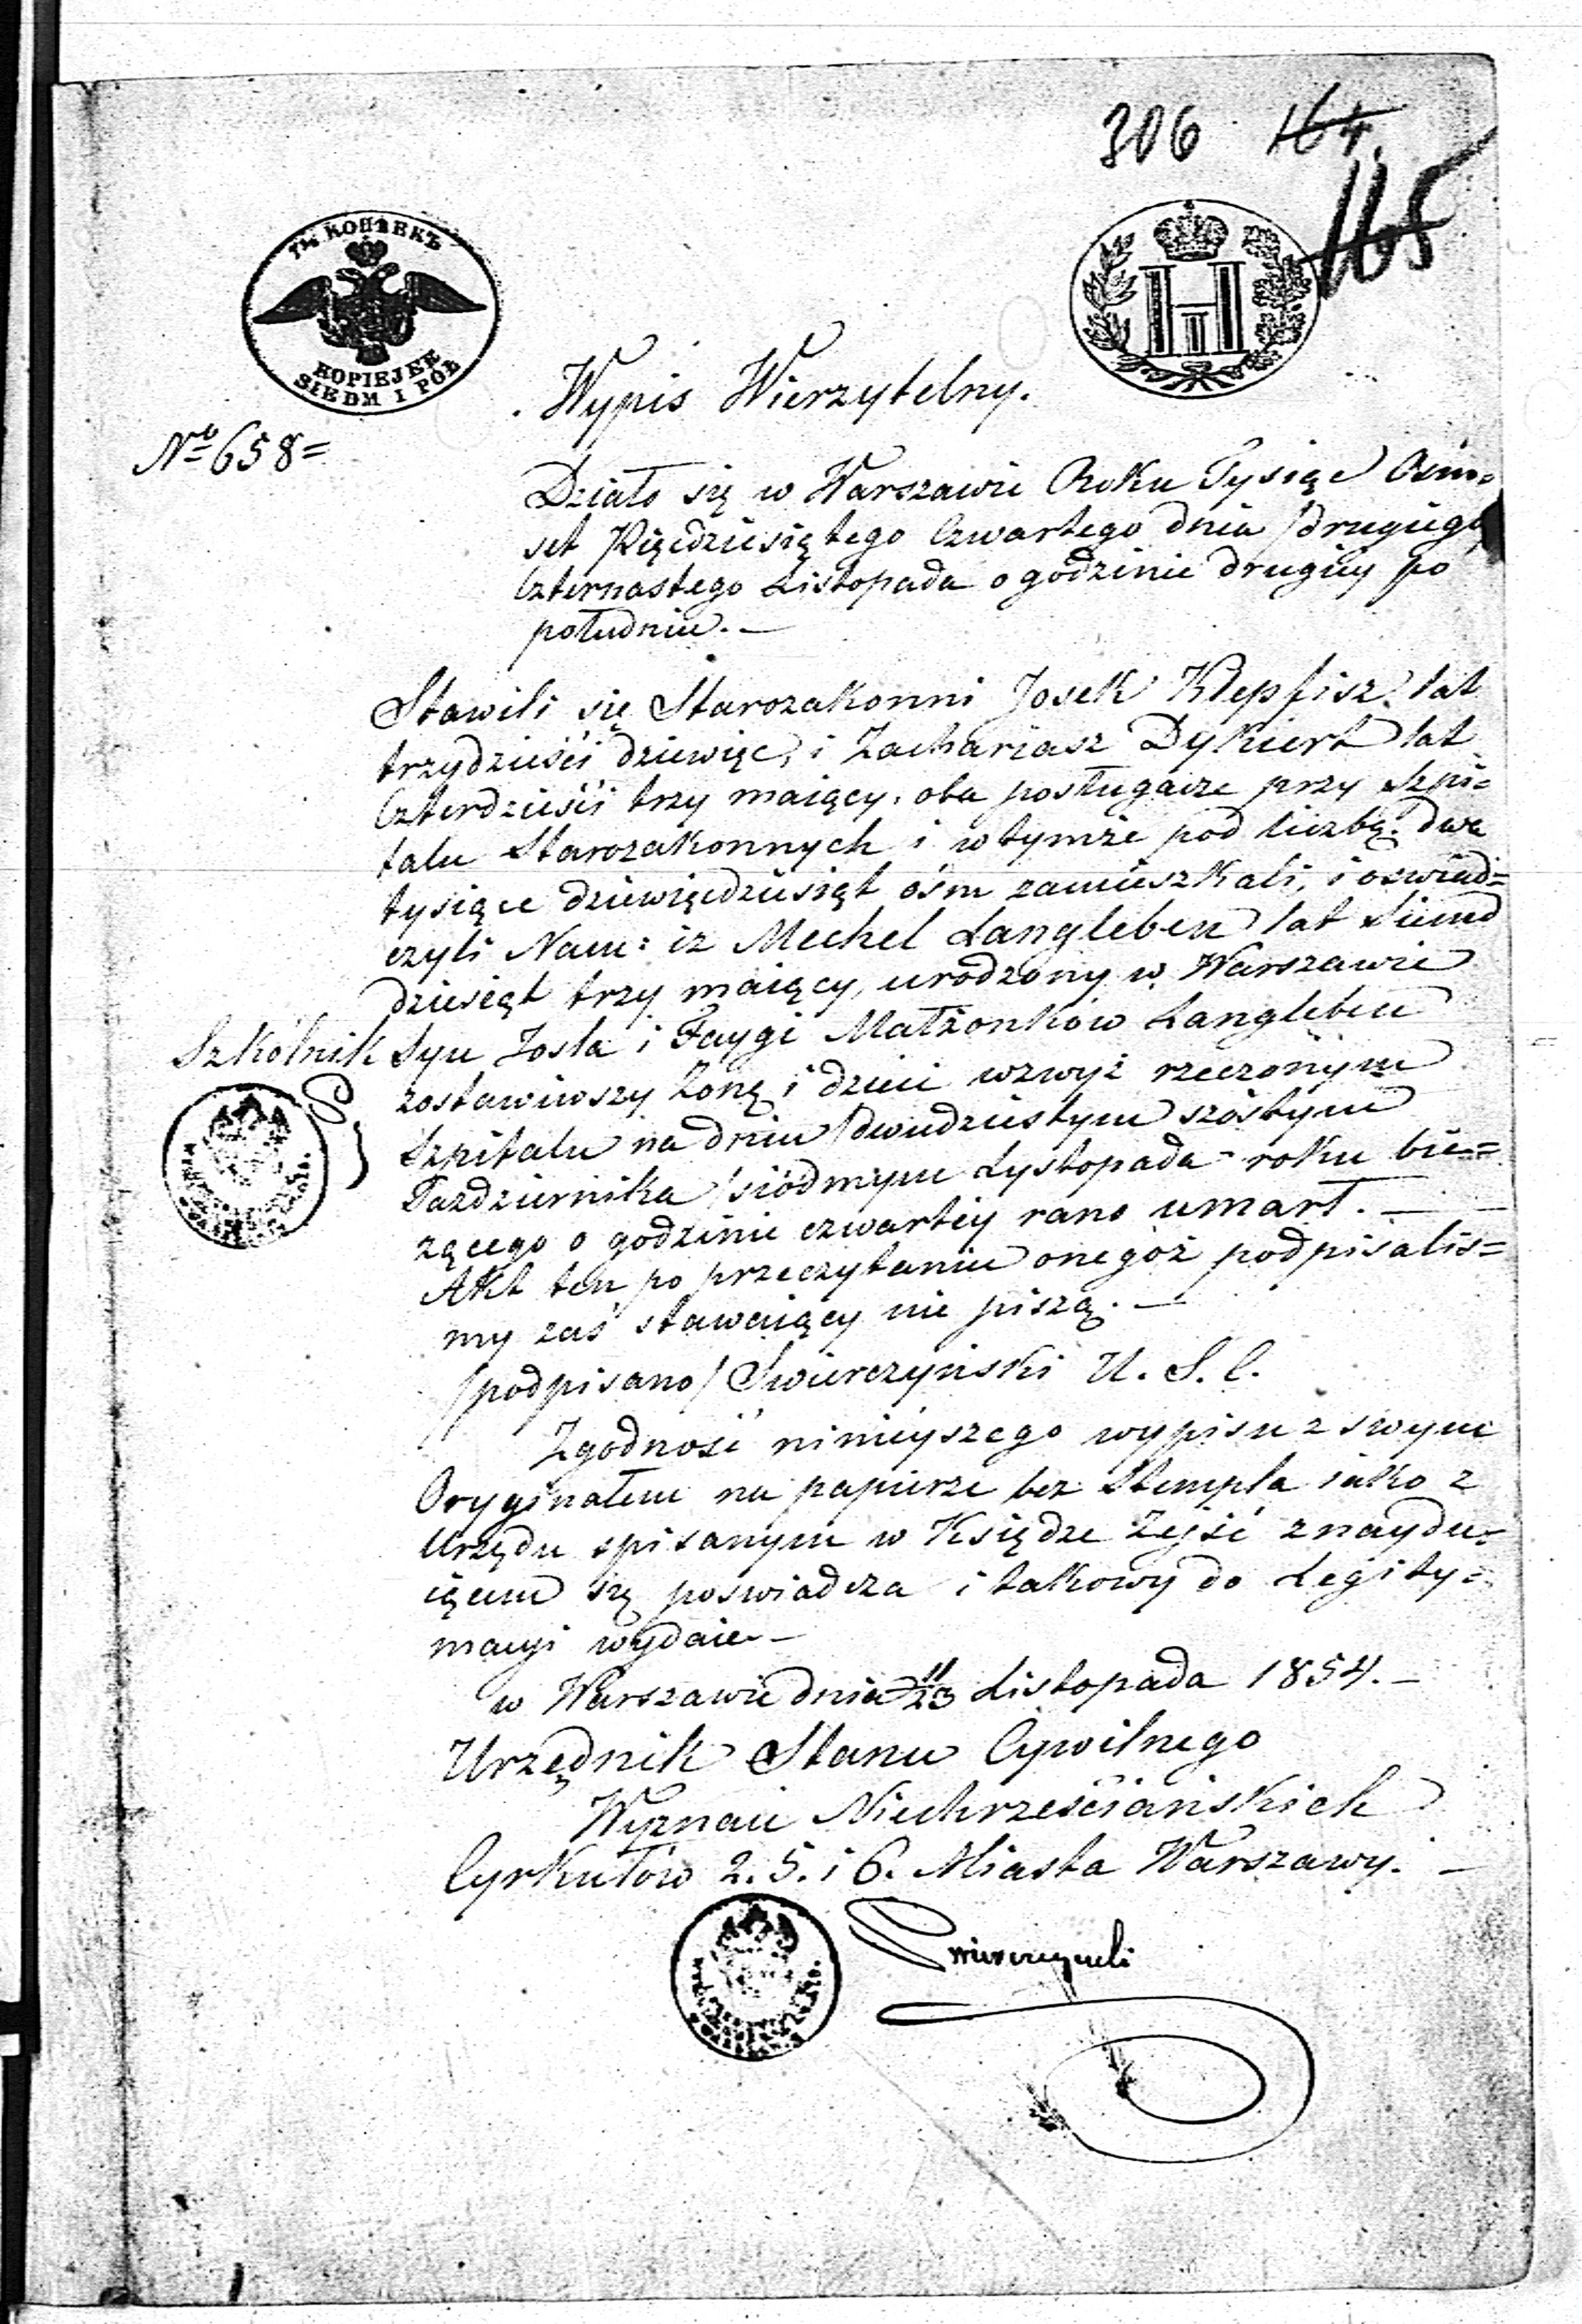 306 164.
165
7½ КОПѢЕКЪ
KOPIEJEK
SIEDM I PÓŁ
Wypis Wierzytelny.
No 658=
Działo się w Warszawie Roku Tysiąc Ośm=
set Pięćdziesiątego Czwartego dnia /drugiego
Czternastego Listopada o godzinie drugiey po
południu.—
Stawili się Starozakonni Josek Klepfisz lat
trzydzieści dziewięć, i Zachariasz Dykiert lat
Czterdzieści trzy maiący, oba posługacze przy Szpi=
talu Starozakonnych i w tymże pod liczbą dwa
tysiące dziewięćdziesiąt ośm zamieszkali, i oświad=
czyli Nam: iż Mechel Langleben lat Siemd
dziesiąt trzy maiący, urodzony w Warszawie
Szkólnik Syn Josla i Faygi Małżonków Langleben
zostawiwszy Żonę i dzieci wzwyż rzeczonym
Szpitalu na dniu /dwudziestym szóstym
Pazdziernika /siódmym Lystopada roku bie=
żącego o godzinie czwartey rano umarł. —
Akt ten po przeczytaniu onegoż podpisaliś=
my zaś stawaiący nie piszą. —
/podpisano/ Swierczyński U. S. C.
Zgodność ninieyszego wypisu z swym
Oryginałem na papierze bez Stempla iako z
Urzędu spisanym w Księdze Zejść znaydu=
iącem się poswiadcza i takowy do Legity=
macyi wydaie—
w Warszawie dnia 11/23 Listopada 1854.—
Urzędnik Stanu Cywilnego
Wyznań Niechrześciańskich
Cyrkułów 2. 5. i 6. Miasta Warszawy. —
Swierczynski